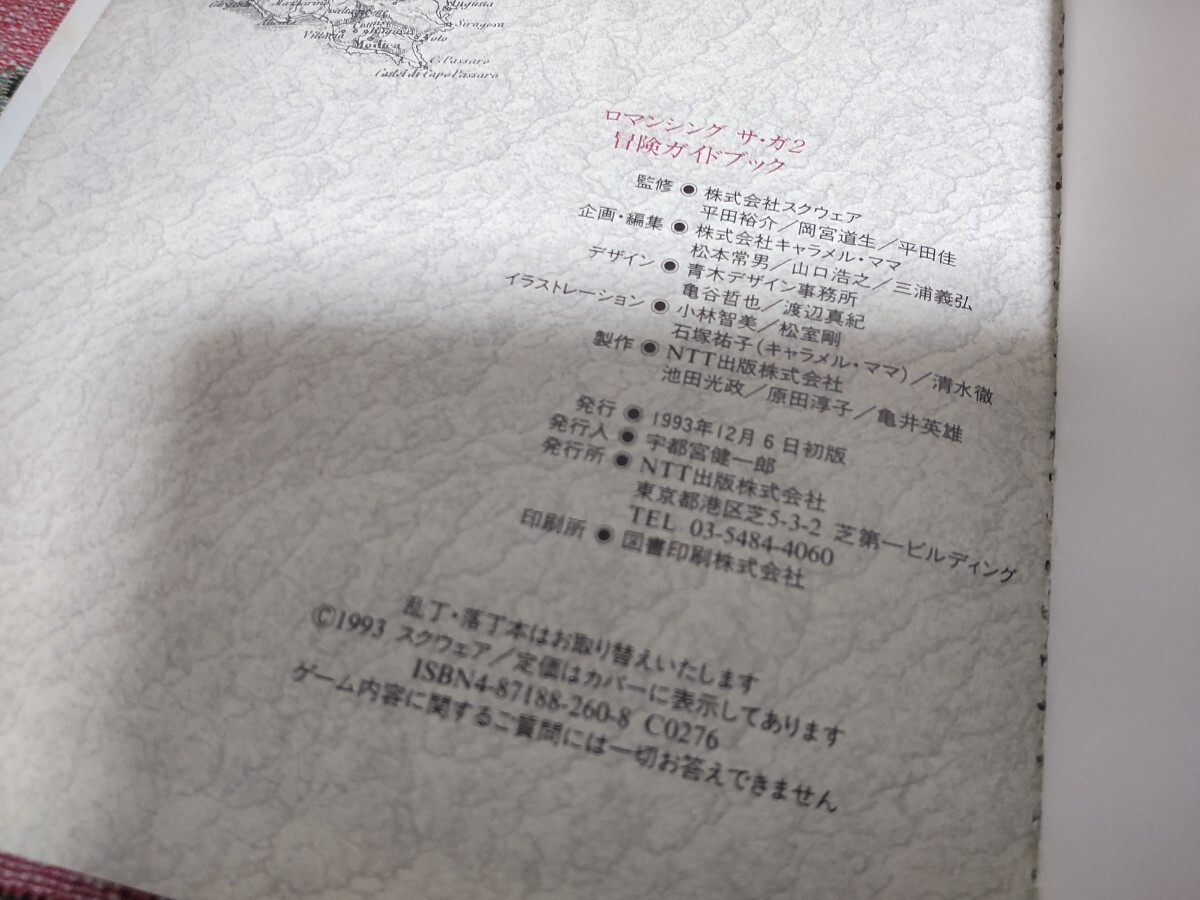 Augusta
Siragosa
Noto
Modica
C. Passaro
Castel di Capo Passaro
ロマンシング サ・ガ2
冒険ガイドブック
監修●株式会社スクウェア
平田裕介／岡宮道生／平田佳
企画・編集●株式会社キャラメル・ママ
松本常男／山口浩之／三浦義弘
デザイン●青木デザイン事務所
亀谷哲也／渡辺真紀
イラストレーション●小林智美／松室剛
石塚祐子(キャラメル・ママ)／清水徹
製作●NTT出版株式会社
池田光政／原田淳子／亀井英雄
発行●1993年12月6日初版
発行人●宇都宮健一郎
発行所●NTT出版株式会社
東京都港区芝5-3-2 芝第一ビルディング
TEL 03-5484-4060
印刷所●図書印刷株式会社
乱丁・落丁本はお取り替えいたします
©1993 スクウェア／定価はカバーに表示してあります
ISBN4-87188-260-8 C0276
ゲーム内容に関するご質問には一切お答えできません